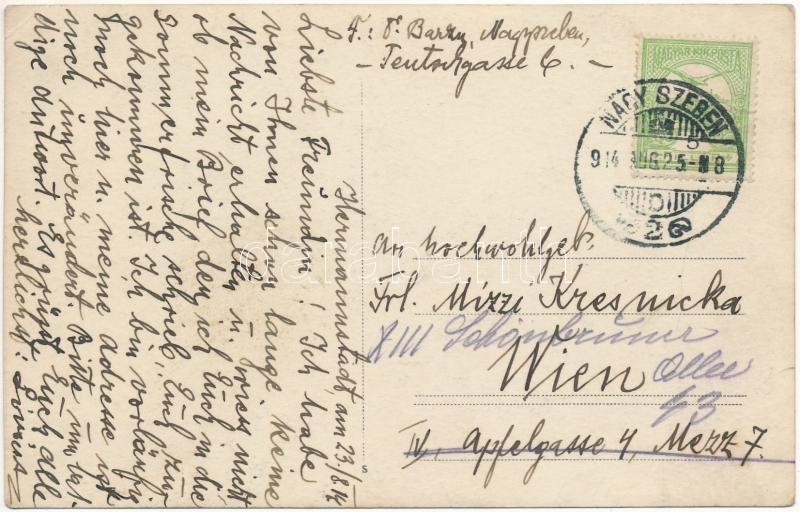 F.: Barzy Nagyszeben,
– Teutschgasse 6. –
MAGYAR KIR. POSTA
NAGY SZEBEN
914 AUG 25 – N8
2
An hochwohlgeb.
Frl. Mizzi Kresnicka
XIII Schönbrunner
Wien
Allee
43
IV, Apfelgasse 4, Mezz 7.
Hermannstadt, am 23./8. 14
Liebste Freundin! Ich habe
von Ihnen schon lange keine
Nachricht erhalten u. weiss nicht
ob mein Brief den ich Euch in die
Sommerfrische schrieb, Euch zu-
gekommen ist. Ich bin vorläufig
noch hier u. meine Adresse ist
noch unverändert. Bitte um bal-
dige Antwort. Es grüsst Euch alle
herzlichst: